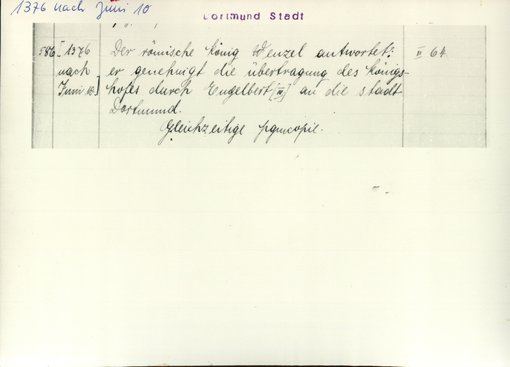 1376 nach Juni 10
Dortmund Stadt
586 [1376 Der römische König Wenzel antwortet: II 64.
nach er genehmigt die übertragung des Königs-
Juni 10.] hofes durch Engelbert [III] an die stadt
Dortmund.
Gleichzeitige pgmcopie.